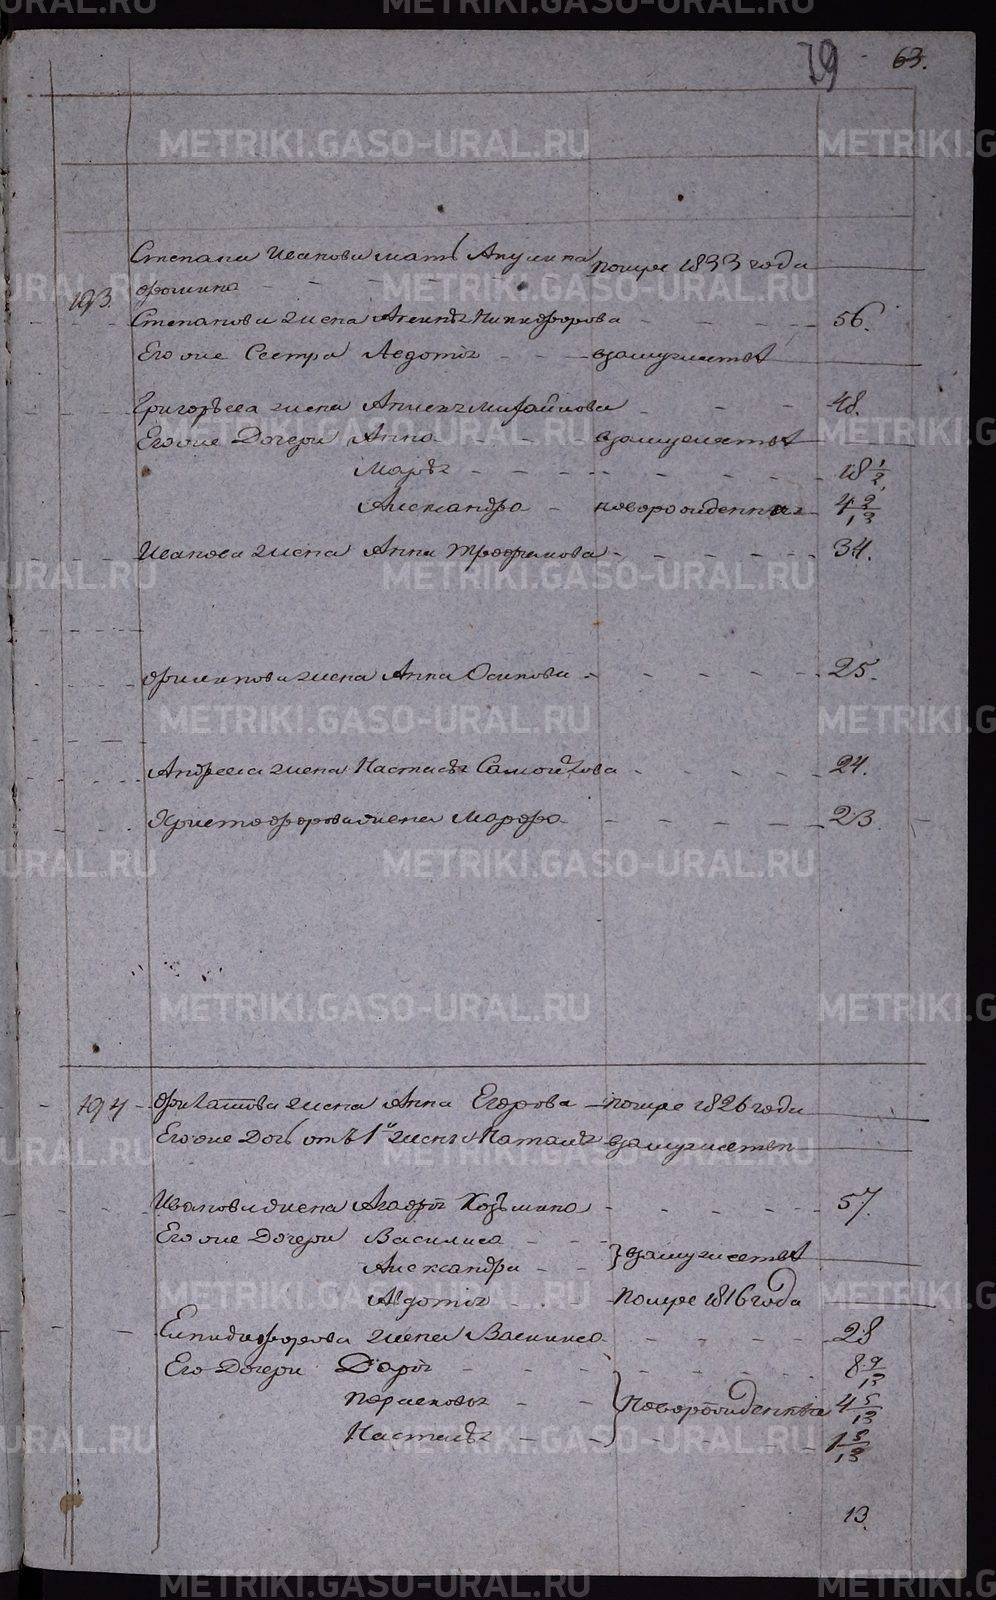 79 63.
Степана Иванова мать Акулина помре 1833 года
193. Фомина
Степанова жена Аксинья Никифорова 56.
Его же Сестра Авдотья взамужестве
Григорьева жена Михайлова 48.
Его же Дочери Анна взамужестве
Марья 18 1/2
Александра новорожденная 4 9/13
Иванова жена Анна Трофимова 34.
Филипова жена Анна Осипова 25.
Андреева жена Настасья Самойлова 24.
Христофорова жена Марфа 23.
194 жена Анна Егорова помре 1826 года
Его же Дочь отъ 1й жены Наталья взамужестве
Иванова жена Агафья Козьмина 57.
Его же Дочери Василиса
Александра } взамужестве
Авдотья помре 1816 года
Елпидифорова жена Василиса 28
Его Дочери Дарья 8 9/13
Парасковья } Новорожденные 4 5/13
Настасья
13.
METRIKI.GASO-URAL.RU